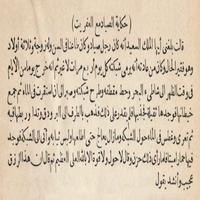 (حكاية الصياد مع العفريت)
قالت بلغنى أيها الملك السعيد أنه كان رجل صياد وكان طاعنا فى السن وله زوجة وثلاثة أولاد
وهو فقير الحال وكان من عادته أنه يرمى شبكته كل يوم أربع مرات لا غير ثم انه خرج يوما من الايام
فى وقت الظهر الى شاطئ البحر وحط مقطفه وطرح شبكته وصبر الى أن استقرت فى الماء ثم جمع
خيطانها فوجدها ثقيلة فجذبها فلم يقدر على ذلك فذهب بالطرف الى البر ودق وتدا وربطها فيه
ثم تعرى وغطس فى الماء حول الشبكة وما زال يعالج حتى أطلعها ولبس ثيابه وأتى الى الشبكة فوجد
فيها حمارا ميتا فلما رأى ذلك حزن وقال لا حول ولا قوة الا بالله العلى العظيم ثم قال ان هذا الرزق
عجيب وأنشد يقول